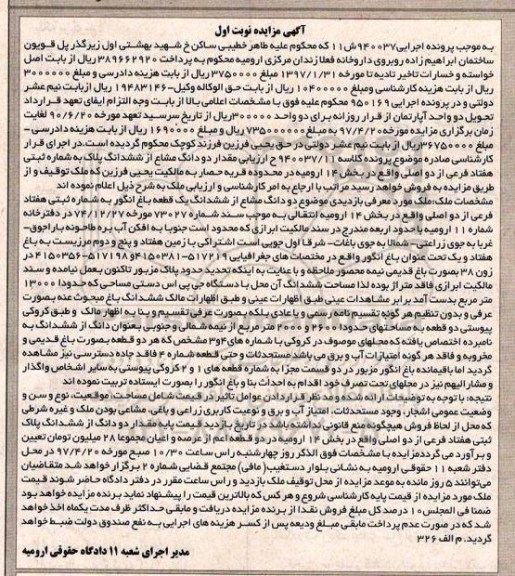 آگهی مزایده نوبت اول
به موجب پرونده اجرایی ۹۴۰۰۳۷ش۱۱ که محکوم علیه طاهر خطیبی ساکن خ شهید بهشتی اول زیرگذر پل قویون
ساختمان ابراهیم زاده روبروی داروخانه فعلا زندان مرکزی ارومیه محکوم به پرداخت ۳۸۹۶۶۲۹۲۰ ریال از بابت اصل
خواسته و خسارات تاخیر تادیه تا مورخه ۱۳۹۷/۱/۳۱ مبلغ ۳۷۵۰۰۰۰ ریال از بابت هزینه دادرسی و مبلغ ۳۰۰۰۰۰۰
ریال از بابت هزینه کارشناسی ومبلغ ۱۰۴۰۰۰۰۰ ریال از بابت حق الوکاله وکیل-۱۹۴۸۳۱۴۶ ریال ازبابت نیم عشر
دولتی و در پرونده اجرایی ۹۵۰۱۶۹ محکوم علیه فوق با مشخصات اعلامی بالا از بابت وجه التزام ایفای تعهد قرارداد
تحویل دو واحد آپارتمان از قرار روزانه برای دو واحد ۳۰۰۰۰۰ریال از تاریخ سررسید تعهد مورخه ۹۰/۶/۲۰ لغایت
زمان برگزاری مزایده مورخه ۹۷/۴/۲۰ به مبلغ ۷۳۵۰۰۰۰۰۰ ریال و مبلغ ۱۶۹۰۰۰۰ ریال از بابت هزینه دادرسی -
۳۶۷۵۰۰۰۰ریال از بابت نیم عشر دولتی در حق یحیی فرزین فرزند کوچک محکوم گردیده است.در اجرای قرار
کارشناسی صادره موضوع پرونده کلاسه ۹۴۰۰۳۷/۱۱ ح ارزیابی مقدار دو دانگ مشاع از ششدانگ پلاک به شماره ثبتی
هفتاد فرعی از دو اصلی واقع در بخش ۱۴ ارومیه در محدوده قریه حصار به مالکیت یحیی فرزین که ملک توقیف و از
طریق مزایده به فروش خواهد رسید مراتب با ارجاع به امر کارشناسی و ارزیابی ملک به شرح ذیل اعلام نموده اند
مشخصات ملک:ملک مورد معرفی بازدیدی موضوع دو دانگ مشاع از ششدانگ یک قطعه باغ انگور به شماره ثبتی هفتاد
فرعی از دو اصلی واقع در بخش ۱۴ ارومیه انتقالی به موجب سند شماره ۷۳۰۲۷ مورخه ۷۴/۱۲/۲۷ در دفترخانه
شماره ۱۱ ارومیه با حدود اربعه مندرج در سند مالکیت ابرازی که محدود است جنوبا به افکن آب بره طاحونه باراجوق-
غربا به جوی زراعتی- شمالا به جوی باغات- شرقا اول جوبی است اشتراکی با زمین هفتاد و پنج و دوم مرزیست به باغ
هفتاد و یک تحت عنوان باغ انگور واقع در مختصات های جغرافیایی ۵۱۷۲۱۹-۴۱۵۰۳۸۱و۵۱۷۱۹۸-۴۱۵۰۳۵۶ در
زون ۳۸ بصورت باغ قدیمی نیمه محصور ملاحظه و با عنایت به اینکه تحدید حدود پلاک مزبور تاکنون بعمل نیامده و سند
مالکیت ابرازی فاقد متراژ بوده لذا مساحت ششدانگ آن محل با دستگاه جی پی اس دستی مساحی که حدودا ۱۳۰۰۰
متر مربع بدست آمد برابر مشاهدات عینی طبق اظهارات عینی و طبق اظهارات مالک ششدانگ باغ مبحوث عنه بصورت
عرفی و بدون تنظیم هر گونه تقسیم نامه رسمی و یا عادی بلکه بصورت عرفی تقسیم و بنا به اظهار مالک و طبق کروکی
پیوستی دو قطعه به مساحتهای حدودا ۲۶۰۰ و ۲۰۰۰ متر مربع از نیمه شمالی و جنوبی بعنوان دانگ از ششدانگ به
نامبرده اختصاص یافته که محلهای موصوف در کروکی با شماره های۴و۳ مشخص که هر دو قطعه بصورت باغ قدیمی و
مخروبه و فاقد هر گونه امتیازات آب و برق می باشد مستحدثات و حتی قطعه شماره ۴ فاقد جاده دسترسی نیز مشاهده
گردید اما باقیمانده باغ انگور مزبور در دو قسمت مجزا به شماره قطعه های ۱ و ۲ کروکی پیوستی به سایر اشخاص واگذار
و مشارالیهم نیز در محلهای تحت تصرف خود اقدام به احداث بنا و باغ انگور را بصورت ایستاده تربیت نموده اند
نتیجه: با توجه به توضیحات ارائه شده ومد نظر قراردادن عوامل تاثیر در قیمت شامل مساحت، موقعیت، نوع و سن و
وضعیت عمومی اشجار، وجود مستحدثات، امتیاز آب و برق و نوعیت کاربری زراعی و باغی، مشاعی بودن ملک و غیره شرطی
که محل از لحاظ فروش هیچگونه منع قانونی نداشته باشد در تاریخ بازدید قیمت پایه مقدار دو دانگ از ششدانگ پلاک
ثبتی هفتاد فرعی از دو اصلی واقع در بخش ۱۴ ارومیه در دو قطعه اعم از عرصه و اعیان مجموعا ۲۸ میلیون تومان تعیین
و برآورد می گرددمزایده با مشخصات فوق الذکر روز چهارشنبه راس ساعت ۱۰/۳۰ صبح مورخه ۹۷/۴/۲۰ در محل
دفتر شعبه ۱۱ حقوقی ارومیه به نشانی بلوار دستغیب( مافی) مجتمع قضایی شماره ۲ برگزار خواهد شد متقاضیان
می‌توانند ۵ روز مانده به موعد مزایده از محل توقیف ملک بازدید و راس ساعت مقرر در دفتر دادگاه حاضر شوند قیمت
ملک مورد مزایده از قیمت پایه کارشناسی شروع و هر کس که بالاترین قیمت را پیشنهاد نماید برنده مزایده خواهد بود
ضمنا فی المجلس ۱۰ در صد کل مبلغ فروش نقدا از برنده مزایده دریافت و مابقی حداکثر ظرف مدت یکماه اخذ خواهد
شد که در صورت عدم پرداخت مابقی مبلغ ودیعه پس از کسر هزینه های اجرایی به نفع صندوق دولت ضبط خواهد
گردید. م الف ۳۲۶
مدیر اجرای شعبه ۱۱ دادگاه حقوقی ارومیه